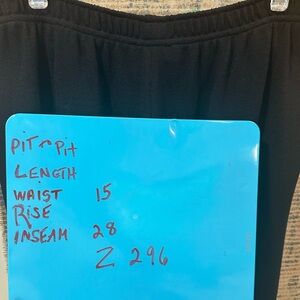 PiT ~ Pit
LENGTH
WAIST 15
RiSE
INSEAM 28
Z 296